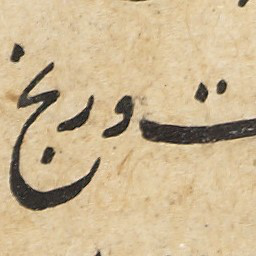 ت و رنج